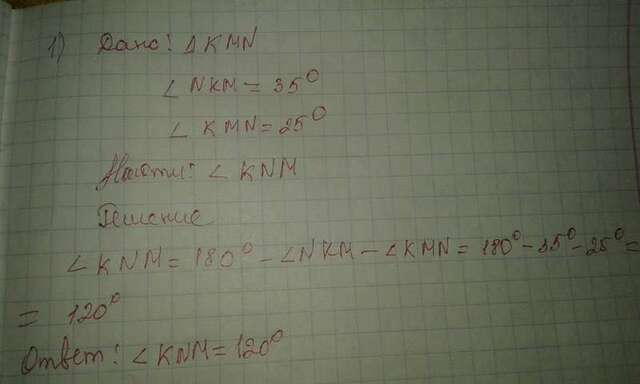 1) Дано: △ KMN
∠ NKM = 35°
∠ KMN = 25°
Найти: ∠ KNM
Решение
∠ KNM = 180° - ∠NKM - ∠KMN = 180° - 35° - 25° =
= 120°
Ответ: ∠KNM = 120°